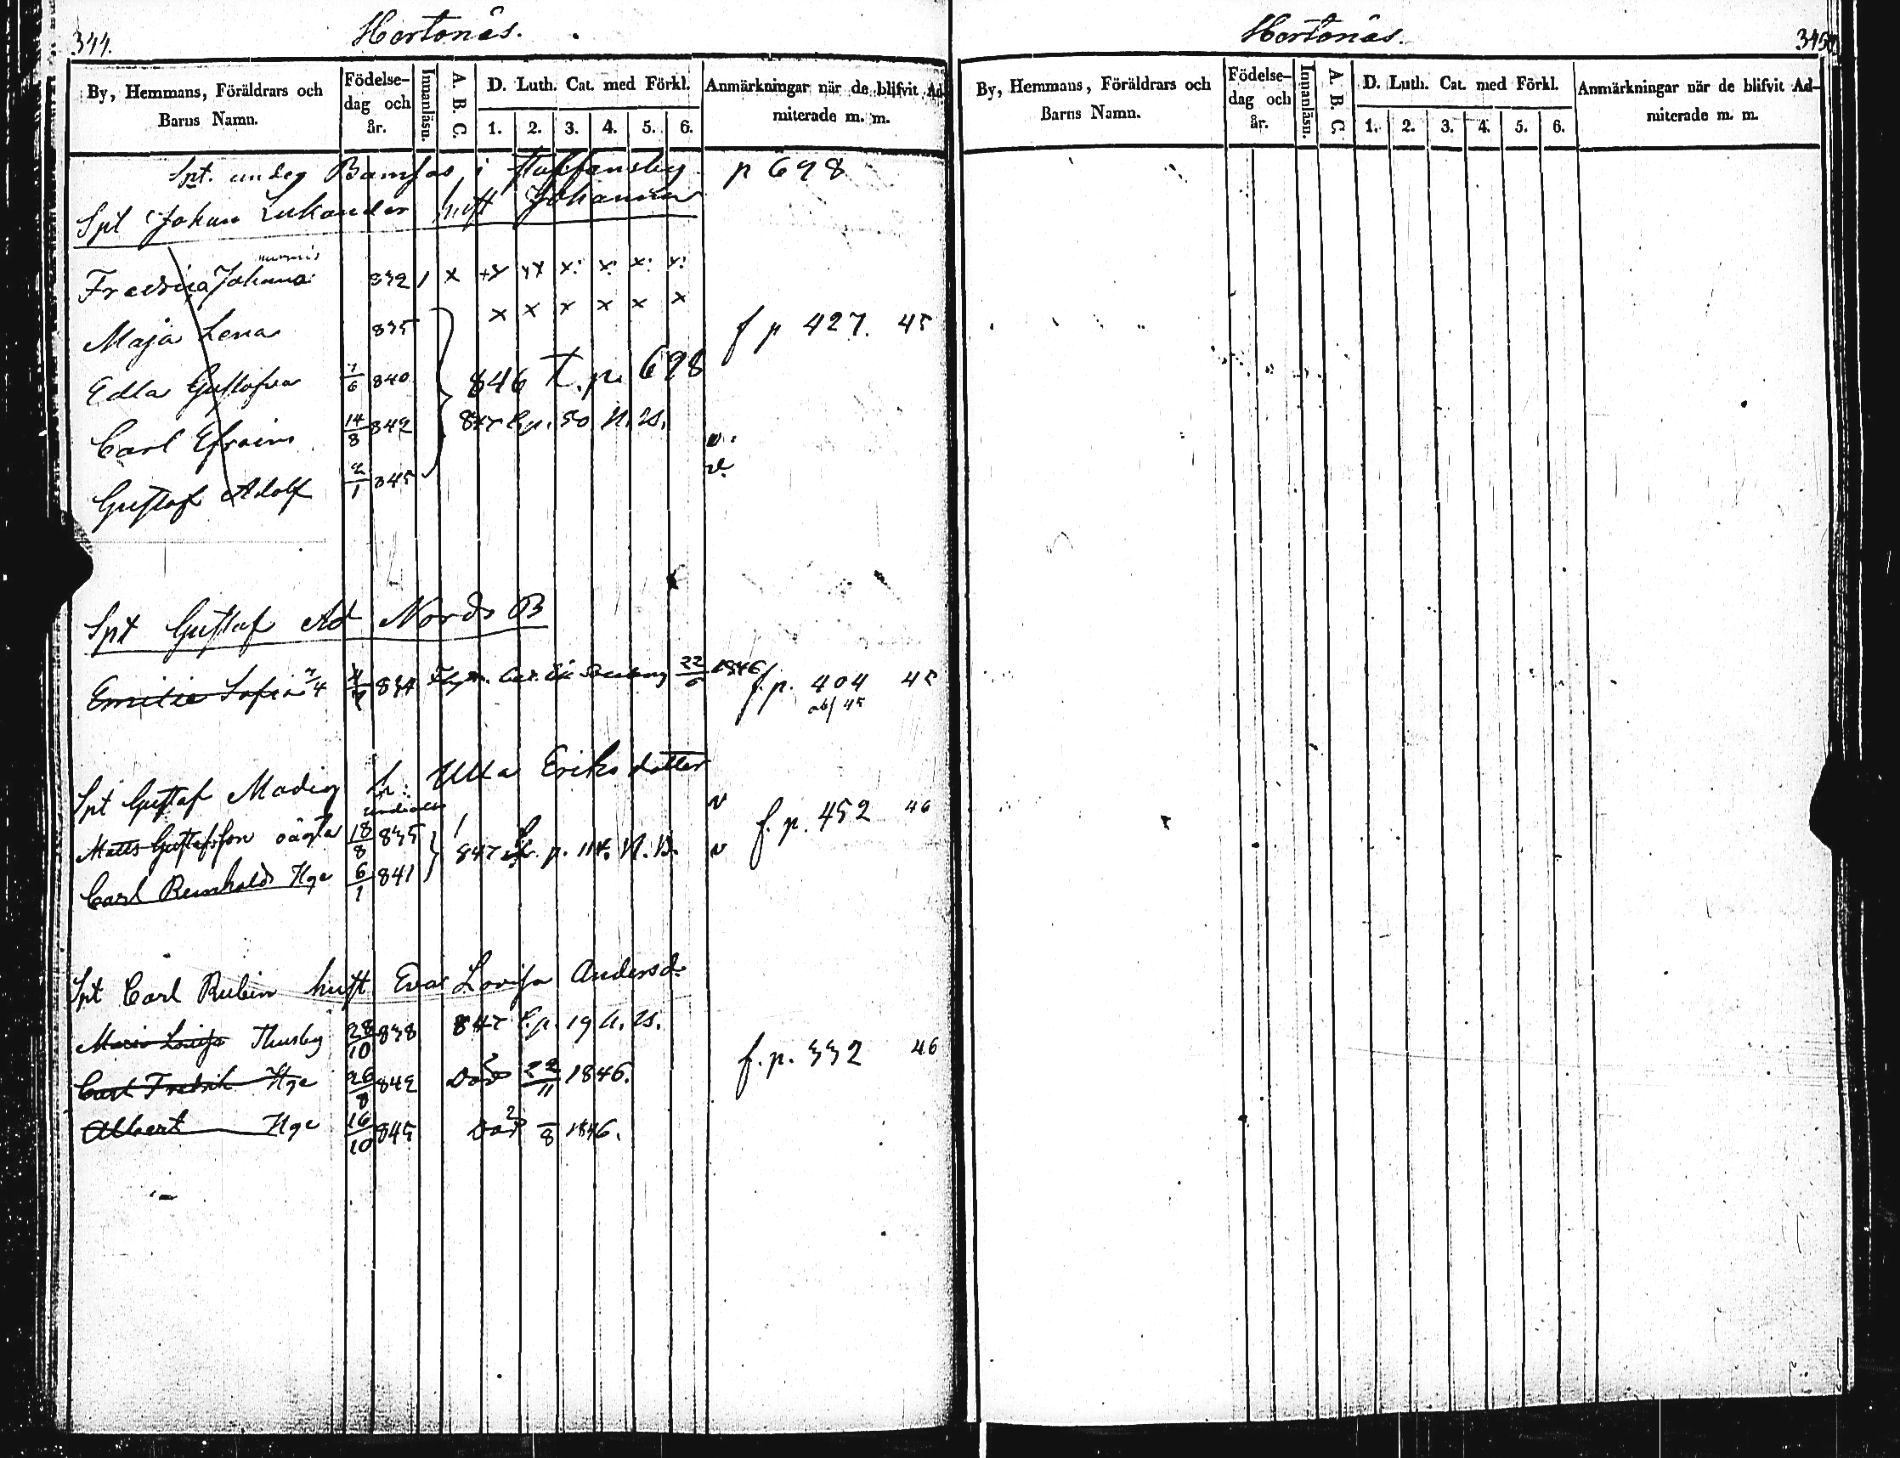 344.
Hertonäs.
By, Hemmans, Föräldrars och Barns Namn.
Födelse-dag och år.
Innanläsn.
A. B. C.
D. Luth. Cat. med Förkl.
1. 2. 3. 4. 5. 6.
Anmärkningar när de blifvit Ad-miterade m. m.
Spt. under i Staffansby p 698
Spt Johan Lukander hust Johanna
Fredrica Johanna 832 1 x +x xx x: x: x: x:
Maja Lena 835 x x x x x x f p 427. 45
Edla Gustafva 7/6 840 846 t. p. 698
Carl Efraim 14/8 842 847 t. p. 50 N. B. v.
Gustaf Adolf 2/1 845 v.
Spt Gustaf Ad Nords B
Emilie Sofia 834 22/5 1846 f. p. 404 45
Spt Gustaf Modig h: Ulla Eriksdotter v
Matts Gustafsson oägta 18/8 835 847 t. p. 114. N. B. f. p. 452 46
Carl Reinhold Hge 6/1 841 v
Spt Carl Rubin hust Eva Lovisa Andersd.
Maria Lovisa Thusby 28/10 838 847 t. p. 19 N. B.
Carl Fredrik Hge 26/8 842 Död 22/11 1846. f. p. 332 46
Albert Hge 16/10 845 Död 2/8 1846.
Hertonäs.
345.
By, Hemmans, Föräldrars och Barns Namn.
Födelse-dag och år.
Innanläsn.
A. B. C.
D. Luth. Cat. med Förkl.
1. 2. 3. 4. 5. 6.
Anmärkningar när de blifvit Ad-miterade m. m.